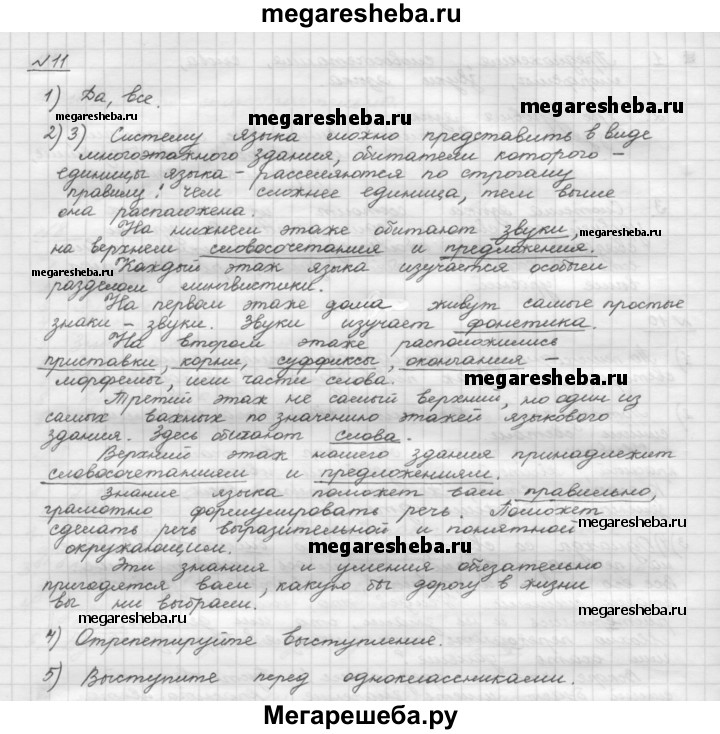 megaresheba.ru
№11
1) Да, все.
megaresheba.ru
megaresheba.ru
2)3) Систему языка можно представить в виде
многоэтажного здания, обитатели которого –
единицы языка – расселяются по строгому
правилу: чем сложнее единица, тем выше
она расположена.
На нижнем этаже обитают звуки,
на верхнем словосочетания и предложения.
megaresheba.ru
megaresheba.ru
Каждый этаж языка изучается особым
разделом лингвистики.
На первом этаже дома живут самые простые
знаки – звуки. Звуки изучает фонетика.
На втором этаже расположились
приставки, корни, суффиксы, окончания –
морфемы, или части слова.
megaresheba.ru
Третий этаж не самый верхний, но один из
самых важных по значению этажей языкового
здания. Здесь обитают слова.
Верхний этаж нашего здания принадлежит
словосочетаниям и предложениям.
Знание языка поможет вам правильно,
грамотно формулировать речь. Поможет
сделать речь выразительной и понятной
окружающим.
megaresheba.ru
Эти знания и умения обязательно
пригодятся вам, какую бы дорогу в жизни
вы ни выбрали.
megaresheba.ru
megaresheba.ru
4) Отрепетируйте выступление.
5) Выступите перед одноклассниками.
Мегарешеба.ру